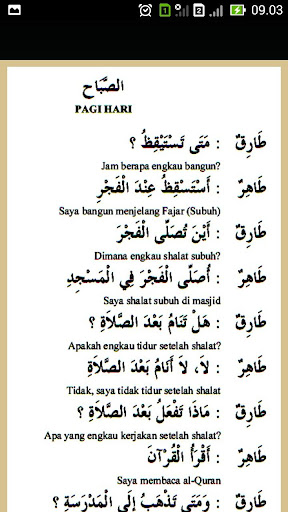 09.03
الصَّبَاح
PAGI HARI
طَارِقٌ : مَتَى تَسْتَيْقِظُ ؟
Jam berapa engkau bangun?
طَاهِرٌ : أَسْتَسْقِظُ عِنْدَ الْفَجْرِ
Saya bangun menjelang Fajar (Subuh)
طَارِقٌ : أَيْنَ تُصَلِّى الْفَجْرَ
Dimana engkau shalat subuh?
طَاهِرٌ : أُصَلِّى الْفَجْرَ فِي الْمَسْجِدِ
Saya shalat subuh di masjid
طَارِقٌ : هَلْ تَنَامُ بَعْدَ الصَّلَاةِ ؟
Apakah engkau tidur setelah shalat?
طَاهِرٌ : لاَ، لَا أَنَامُ بَعْدَ الصَّلَاةِ
Tidak, saya tidak tidur setelah shalat
طَارِقٌ : مَاذَا تَفْعَلُ بَعْدَ الصَّلَاةِ ؟
Apa yang engkau kerjakan setelah shalat?
طَاهِرٌ : أَقْرَأُ الْقُرْآنَ
Saya membaca al-Quran
طَارِقٌ : وَمَتَى تَذْهَبُ إِلَى الْمَدْرَسَةِ ؟